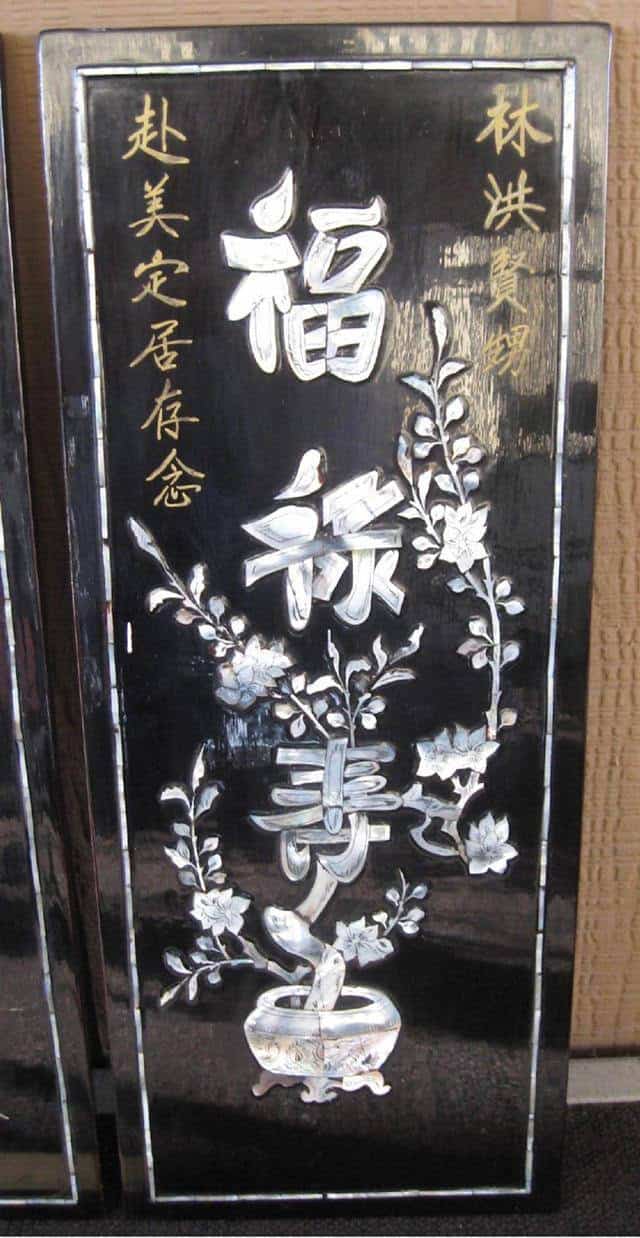 林洪賢甥
福祿寿
赴美定居存念